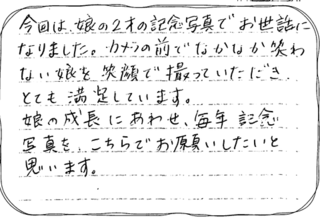 今回は、娘の2才の記念写真でお世話に
なりました。カメラの前でなかなか笑わ
ない娘を笑顔で撮っていただき
とても満足しています。
娘の成長にあわせ、毎年記念
写真を、こちらでお願いしたいと
思います。